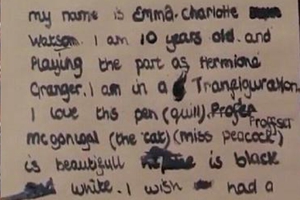 my name is Emma. Charlotte
Watson. I am 10 years old. and
Playing the part as Hermione
Granger. I am in a Transfiguration.
I love this pen (quill). Profer Proffser
mcgonigal (the cat) (miss peacock)
is beautifull is black
white. I wish had a